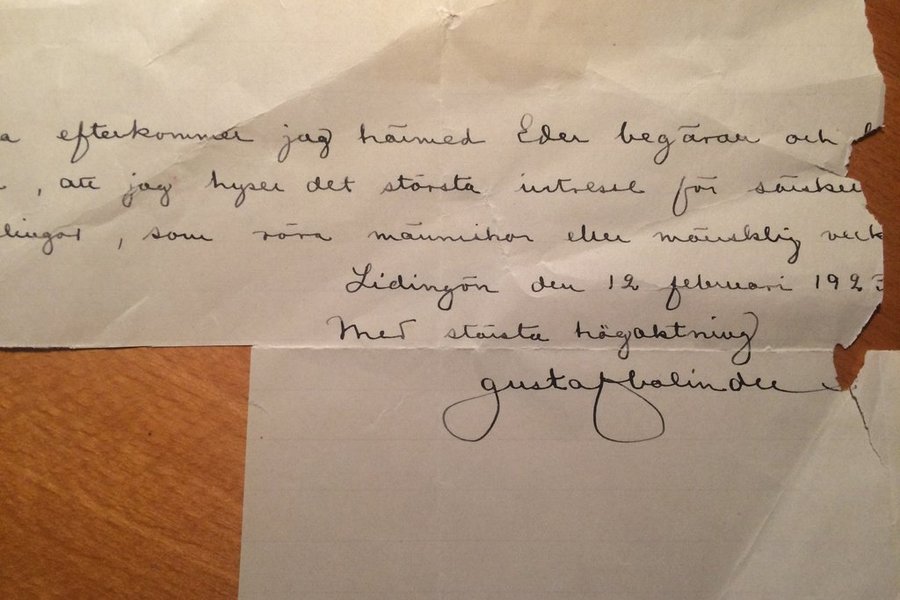 efterkommer jag härmed Eder begäran och
, att jag hyser det största intresse för
lingar, som röra människor eller mänsklig verk
Lidingön den 12 februari 192
Med största högaktning
gustaf bolinder